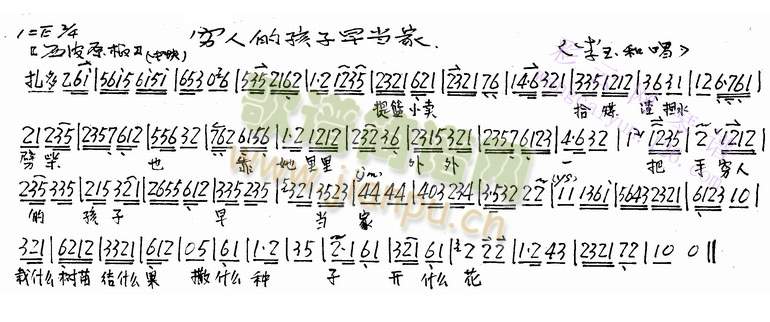 1=E 2/4 穷人的孩子早当家. <李玉和唱>
【西皮原板】(中快)
扎多 2 6i | 5615 6151 | 653 0²6 | 535 2162 | 1·2 1235 | 2321 621 | 2321 76 | 14·6 321 | 335 1212 | 3631 | 12 6·761 |
提篮小卖 拾煤渣 担水
2 1 235 | 2357 612 | 556 32 | 762 6156 | 1·2 1212 | 232 36 | 2315 321 | 2357 6123 | 4·6 32 | 1 1235 | 2 1212 |
劈柴 也 靠 她 里里 外外 一 把 手 穷人
235 335 | 215 321 | 2655 612 | 335 235 | 2321 3523 | 44 44 | 403 234 | 3·532 22 | 11 136i | 5643 2321 | 6123 10 |
的 孩子 早 当 家
321 | 6212 | 3321 | 612 | 05 | 61 | 1·2 | 35 | 2·1 61 | 321 61 | 2 22 | 1·2 43 | 2321 72 | 10 0 ‖
栽什么树苗 结什么果 撒什么种 子 开 什么 花
歌谱简谱网
www.jianpu.cn